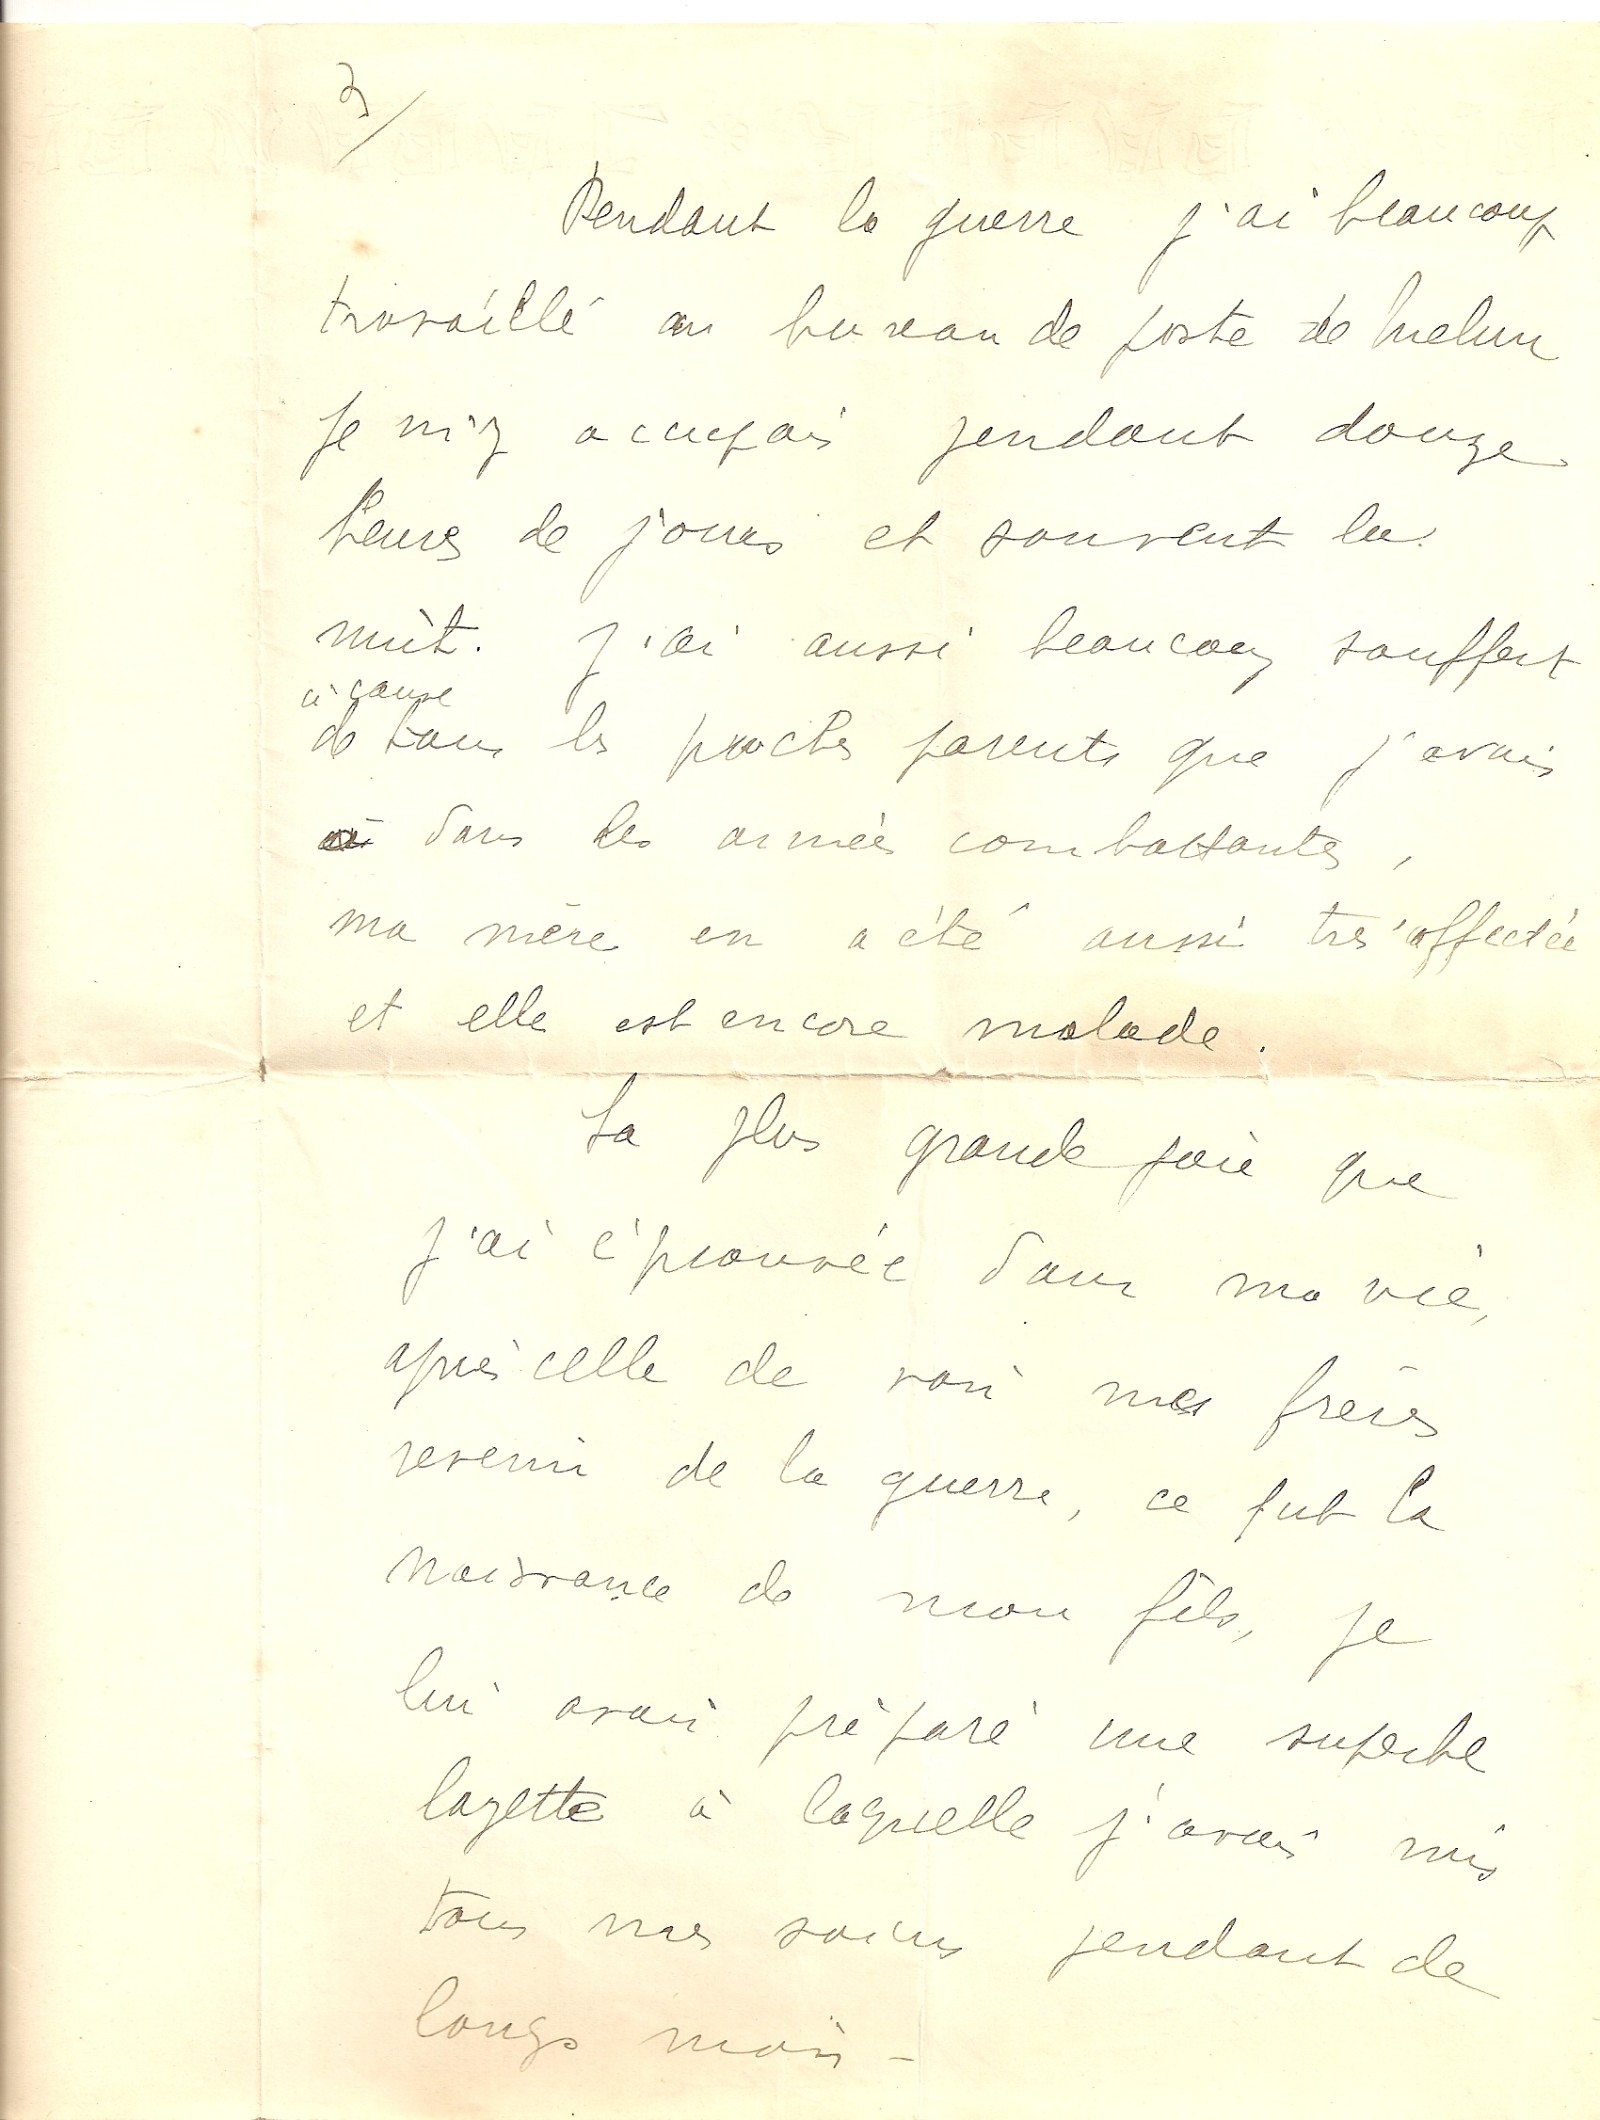 3/
Pendant la guerre j'ai beaucoup
travaillé au bureau de poste de Melun
je m'y occupais pendant douze
heures de jours et souvent la
nuit. J'ai aussi beaucoup souffert
à cause
de tous les proches parents que j'avais
dans les armées combattantes,
ma mère en a été aussi très affectée
et elle est encore malade.
La plus grande joie que
j'ai éprouvée dans ma vie,
après celle de voir mes frères
revenir de la guerre, ce fut la
naissance de mon fils, je
lui avais préparé une superbe
layette à laquelle j'avais mis
tous mes soins pendant de
longs mois -